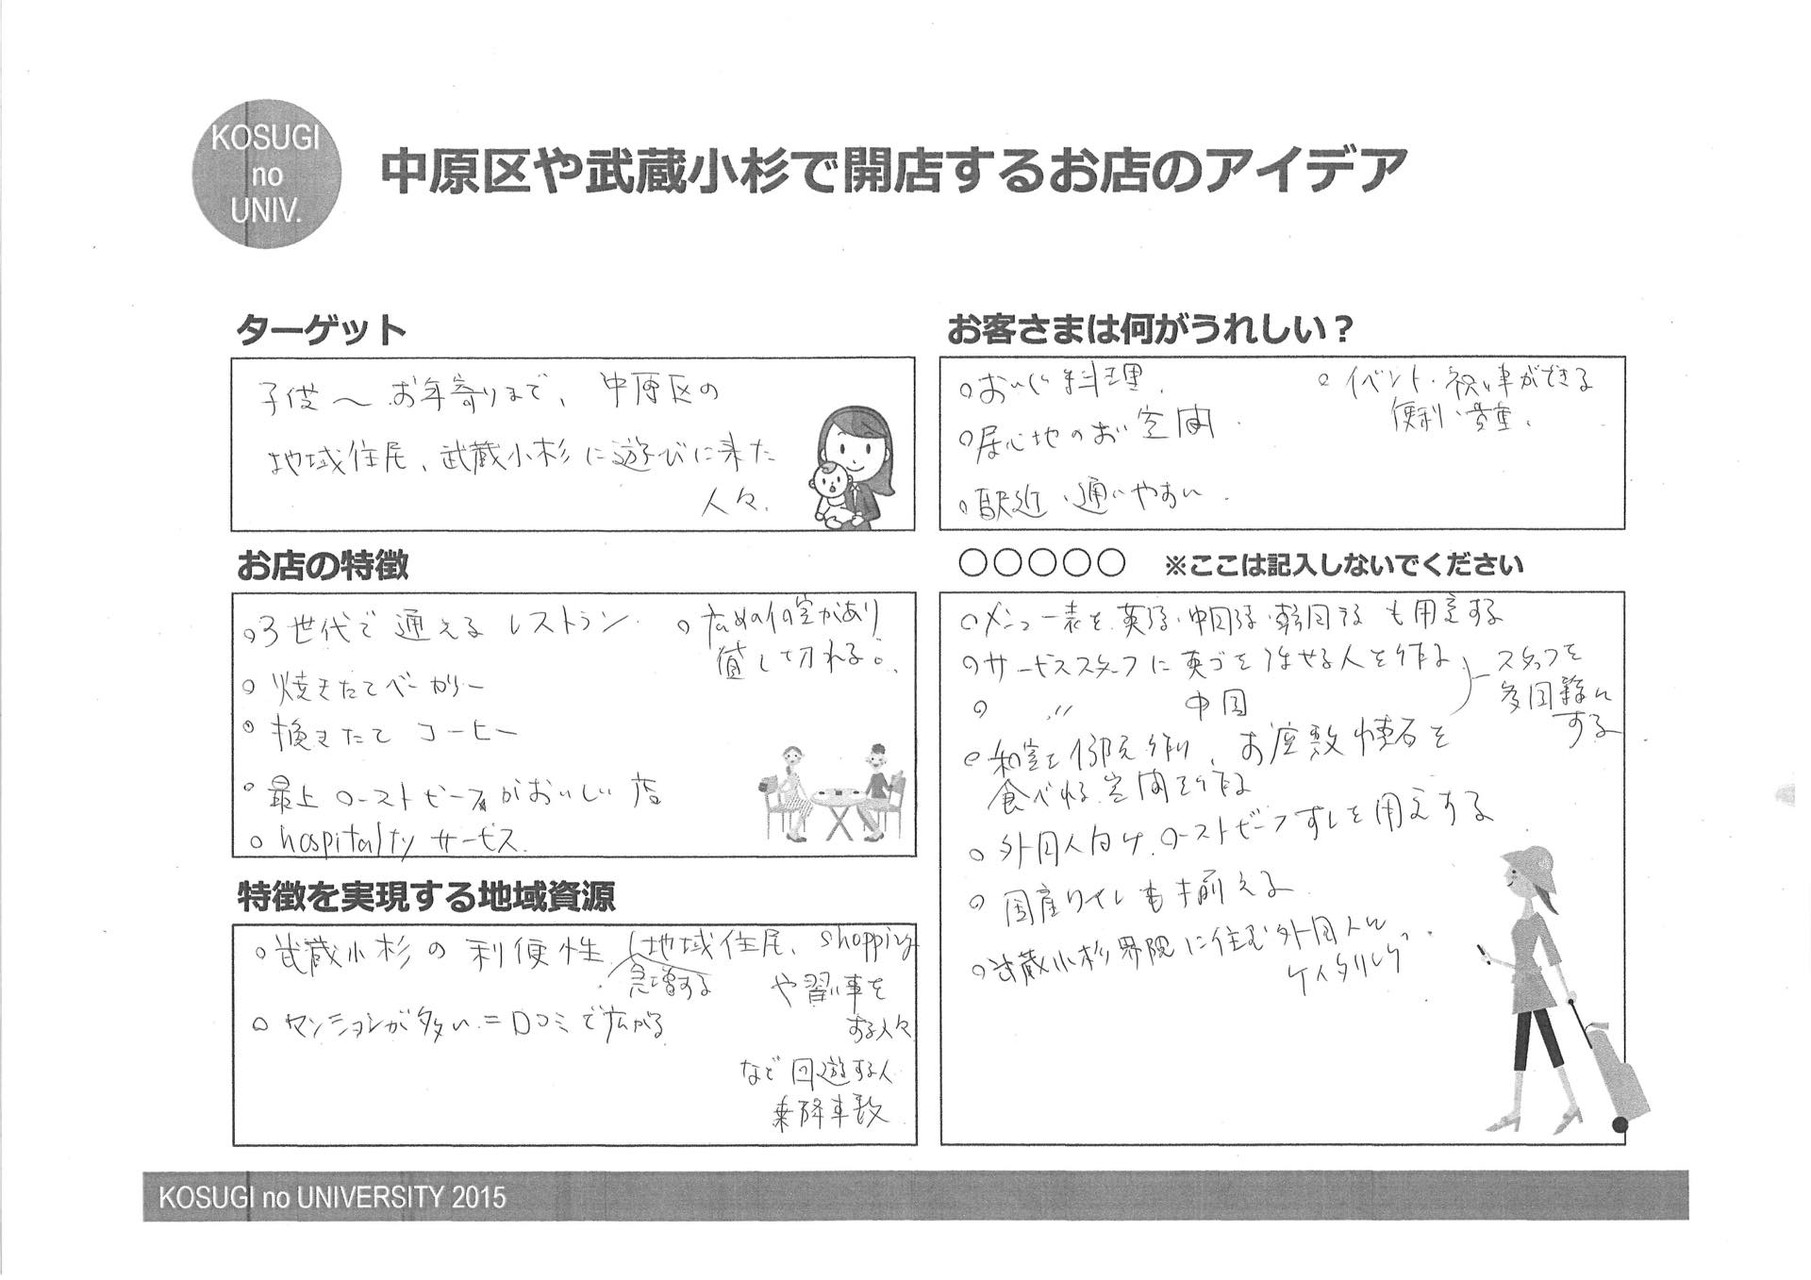 KOSUGI
no
UNIV.
中原区や武蔵小杉で開店するお店のアイデア
ターゲット
子供〜お年寄りまで、中原区の
地域住居、武蔵小杉に遊びに来た
人々.
お客さまは何がうれしい？
○おいしい料理.
○居心地のよい空間.
○駅近・通いやすい.
○イベント・祝い事ができる
便利・貴重.
お店の特徴
○3世代で通える レストラン.
○焼きたてベーカリー
○挽きたて コーヒー
○最上 ローストビーフがおいしい 店
○hospitalty サービス.
○広めの個室があり
貸し切れる。
○○○○○ ※ここは記入しないでください
○メニュー表を英語・中国語・韓国語も用意する
○サービススタッフに英語を話せる人を作る
○ 〃 中国
スタッフを
多国籍に
する
○和室を作り、お座敷懐石を
食べれる空間を作る
○外国人向け、ローストビーフすしを用意する
○国産ワインも揃える
○武蔵小杉界隈に住む外国人に
ケイタリング.
特徴を実現する地域資源
○武蔵小杉の利便性 (地域住居、shopping
急増する
や習い事を
する人々
など回遊する人
乗降車数
○マンションが多い=口コミで広がる
KOSUGI no UNIVERSITY 2015